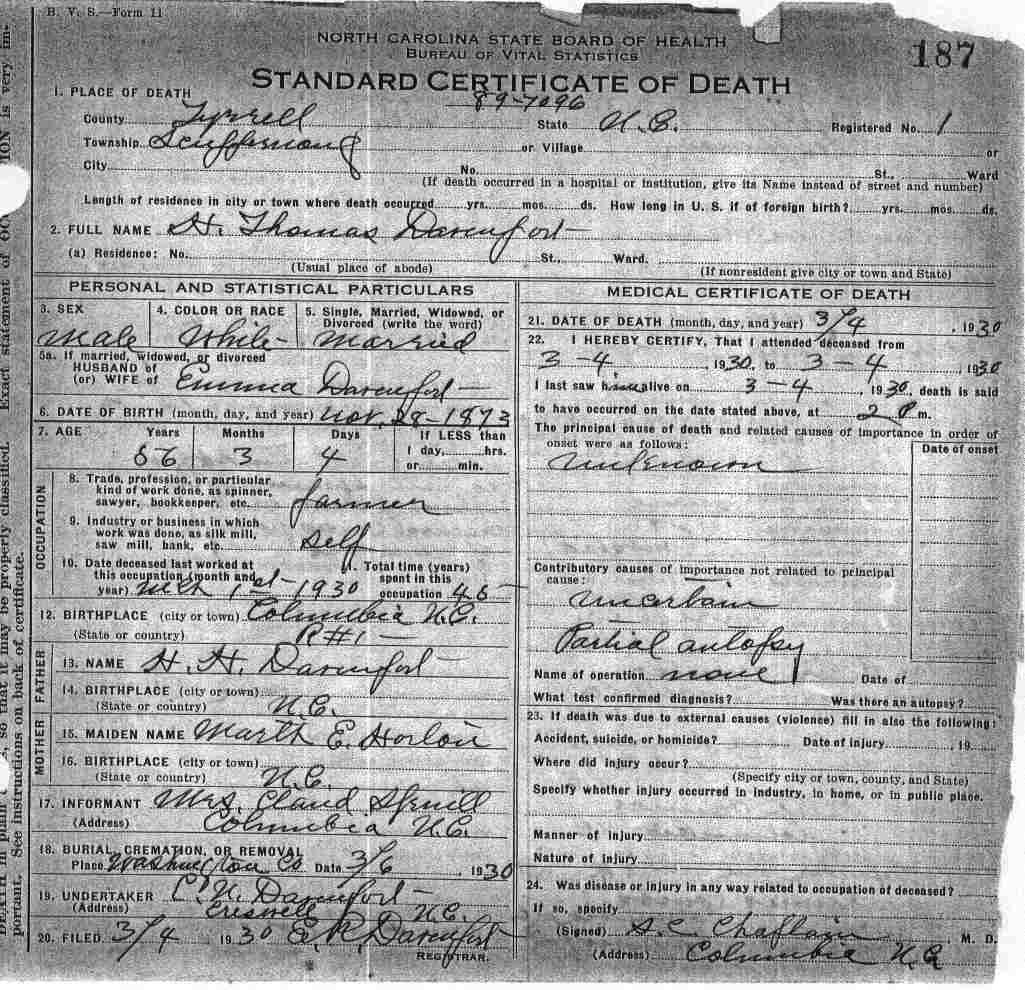 B. V. S.—Form 11
NORTH CAROLINA STATE BOARD OF HEALTH
BUREAU OF VITAL STATISTICS
187
STANDARD CERTIFICATE OF DEATH
1. PLACE OF DEATH 89-7096
County Tyrrell State N.C. Registered No. 1
Township Scuppernong or Village or
City No. St., Ward
(If death occurred in a hospital or institution, give its Name instead of street and number)
Length of residence in city or town where death occurred yrs. mos. ds. How long in U. S. if of foreign birth? yrs. mos. ds.
2. FULL NAME H. Thomas Davenport
(a) Residence: No. St., Ward.
(Usual place of abode) (If nonresident give city or town and State)
PERSONAL AND STATISTICAL PARTICULARS
3. SEX 4. COLOR OR RACE 5. Single, Married, Widowed, or
Divorced (write the word)
Male White Married
5a. If married, widowed, or divorced
HUSBAND of
(or) WIFE of Emma Davenport
6. DATE OF BIRTH (month, day, and year) Nov. 28-1873
7. AGE Years Months Days If LESS than
1 day, hrs.
56 3 4 or min.
OCCUPATION
8. Trade, profession, or particular
kind of work done, as spinner,
sawyer, bookkeeper, etc. farmer
9. Industry or business in which
work was done, as silk mill,
saw mill, bank, etc. self
10. Date deceased last worked at 11. Total time (years)
this occupation (month and spent in this
year) Mch 1st 1930 occupation 45
12. BIRTHPLACE (city or town) Columbia N.C.
(State or country) R#1
FATHER
13. NAME H. H. Davenport
14. BIRTHPLACE (city or town)
(State or country) N.C.
MOTHER
15. MAIDEN NAME Marth E. Horton
16. BIRTHPLACE (city or town)
(State or country) N.C.
17. INFORMANT Mrs. Claud Spruill
(Address) Columbia N.C.
18. BURIAL, CREMATION, OR REMOVAL
Place Washington Co Date 3/6 1930
19. UNDERTAKER C. N. Davenport
(Address) Creswell N.C.
20. FILED 3/4 1930 E. R. Davenport
REGISTRAR.
MEDICAL CERTIFICATE OF DEATH
21. DATE OF DEATH (month, day, and year) 3/4, 1930
22. I HEREBY CERTIFY, That I attended deceased from
3-4, 1930, to 3-4, 1930
I last saw him alive on 3-4, 1930, death is said
to have occurred on the date stated above, at 2 P m.
The principal cause of death and related causes of importance in order of
onset were as follows: Date of onset
unknown
Contributory causes of importance not related to principal
cause:
uncertain
Partial autopsy
Name of operation none Date of
What test confirmed diagnosis? Was there an autopsy?
23. If death was due to external causes (violence) fill in also the following:
Accident, suicide, or homicide? Date of injury, 19
Where did injury occur?
(Specify city or town, county, and State)
Specify whether injury occurred in industry, in home, or in public place.
Manner of Injury
Nature of Injury
24. Was disease or injury in any way related to occupation of deceased?
If so, specify
(Signed) S.C. Chaplain, M. D.
(Address) Columbia N.C.
ION is very im-
Exact statement of OC
it may be properly classified.
, so that
DEATH in plain
portant. See instructions on back of certificate.